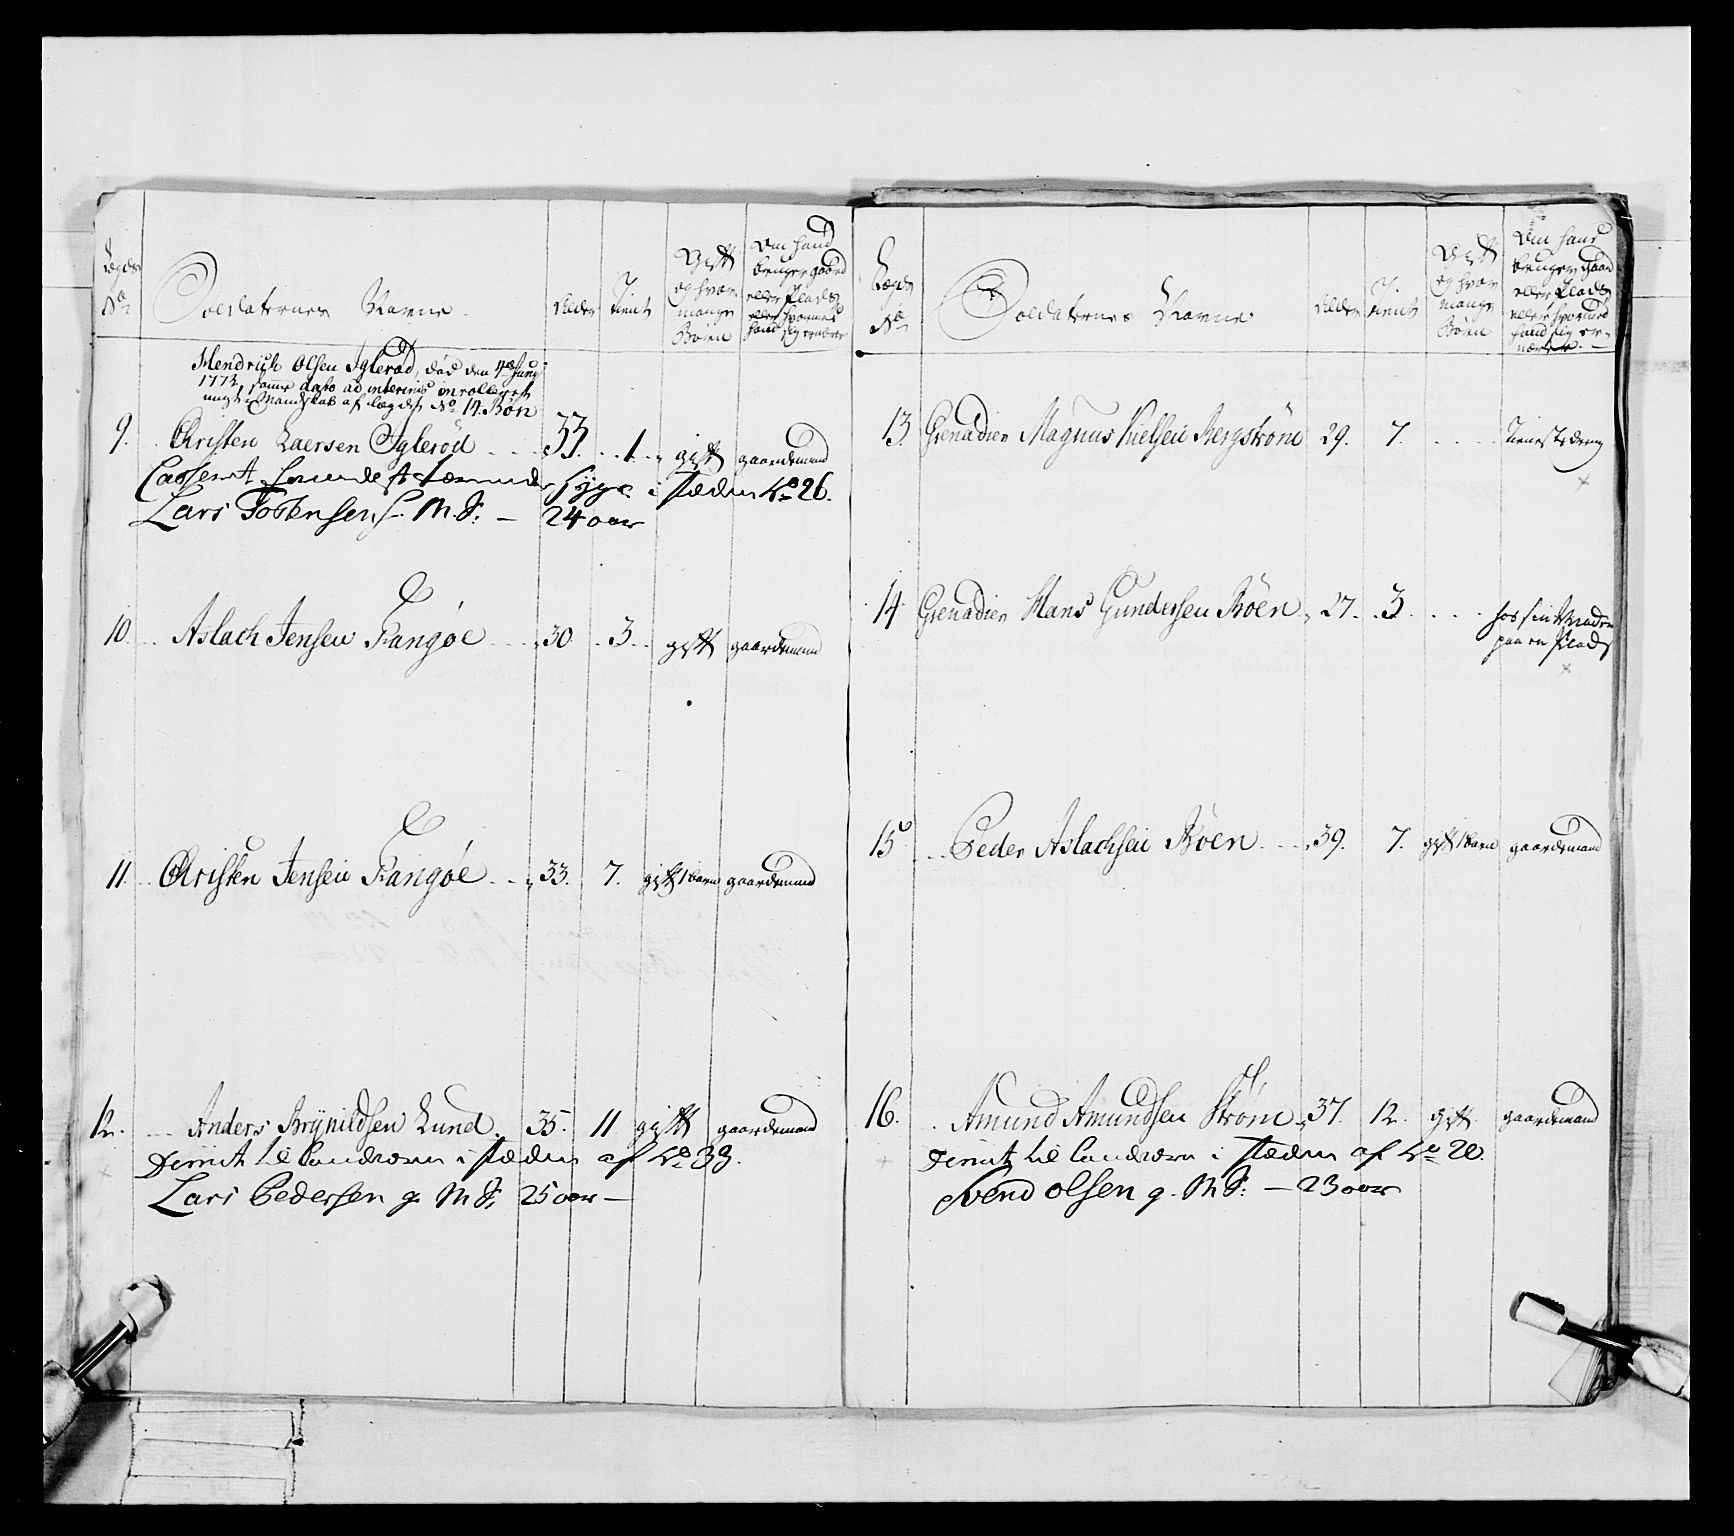 Lægds No
Soldaternes Navne
Alder
Tient
Gift og hvor mange Børn
Om hand bruger gaard eller Plads eller hvormed hand sig ernærer
Hendrich Olsen Iglerød, død den
1773, samme dato ad interim inrolleret
ungt Mandskab af lægdet No 14. Bøn
9. Christen Laersen Iglerød 33. 1. gift gaardemand
Casseret formedelst Syge i stæden No 26.
Lars Tostensen M. S: – 24 aar
10. Aslach Jensen Fangøe 30. 3. gift gaardemand
11. Christen Jensen Fangøe 33. 7. gift 1 barn gaardemand
12. Anders Brynildsen Lund. 35. 11 gift gaardemand
Tient til Landværn i stæden af No 33.
Lars Pedersen g. M. S: 25 aar –
Lægds No
Soldaternes Navne
Alder
Tient
Gift og hvor mange Børn
Om hand bruger Gaard eller Plads eller hvormed hand sig ernærer.
13. Grenadier Magnus Nielsen Bergstrøm 29. 7. Tieneste dreng
14 Grenadier Hans Gundersen Bøen 27. 3 hos sin Moder
paa en Plads
15 Peder Aslachsen Bøen 39. 7. gift 1 barn gaardemand
16. Amund Amundsen Strøm 37. 12. gift gaardemand
Tient til Landværn i stæden af No 20.
Svend Olsen g. M. S: – 23 aar